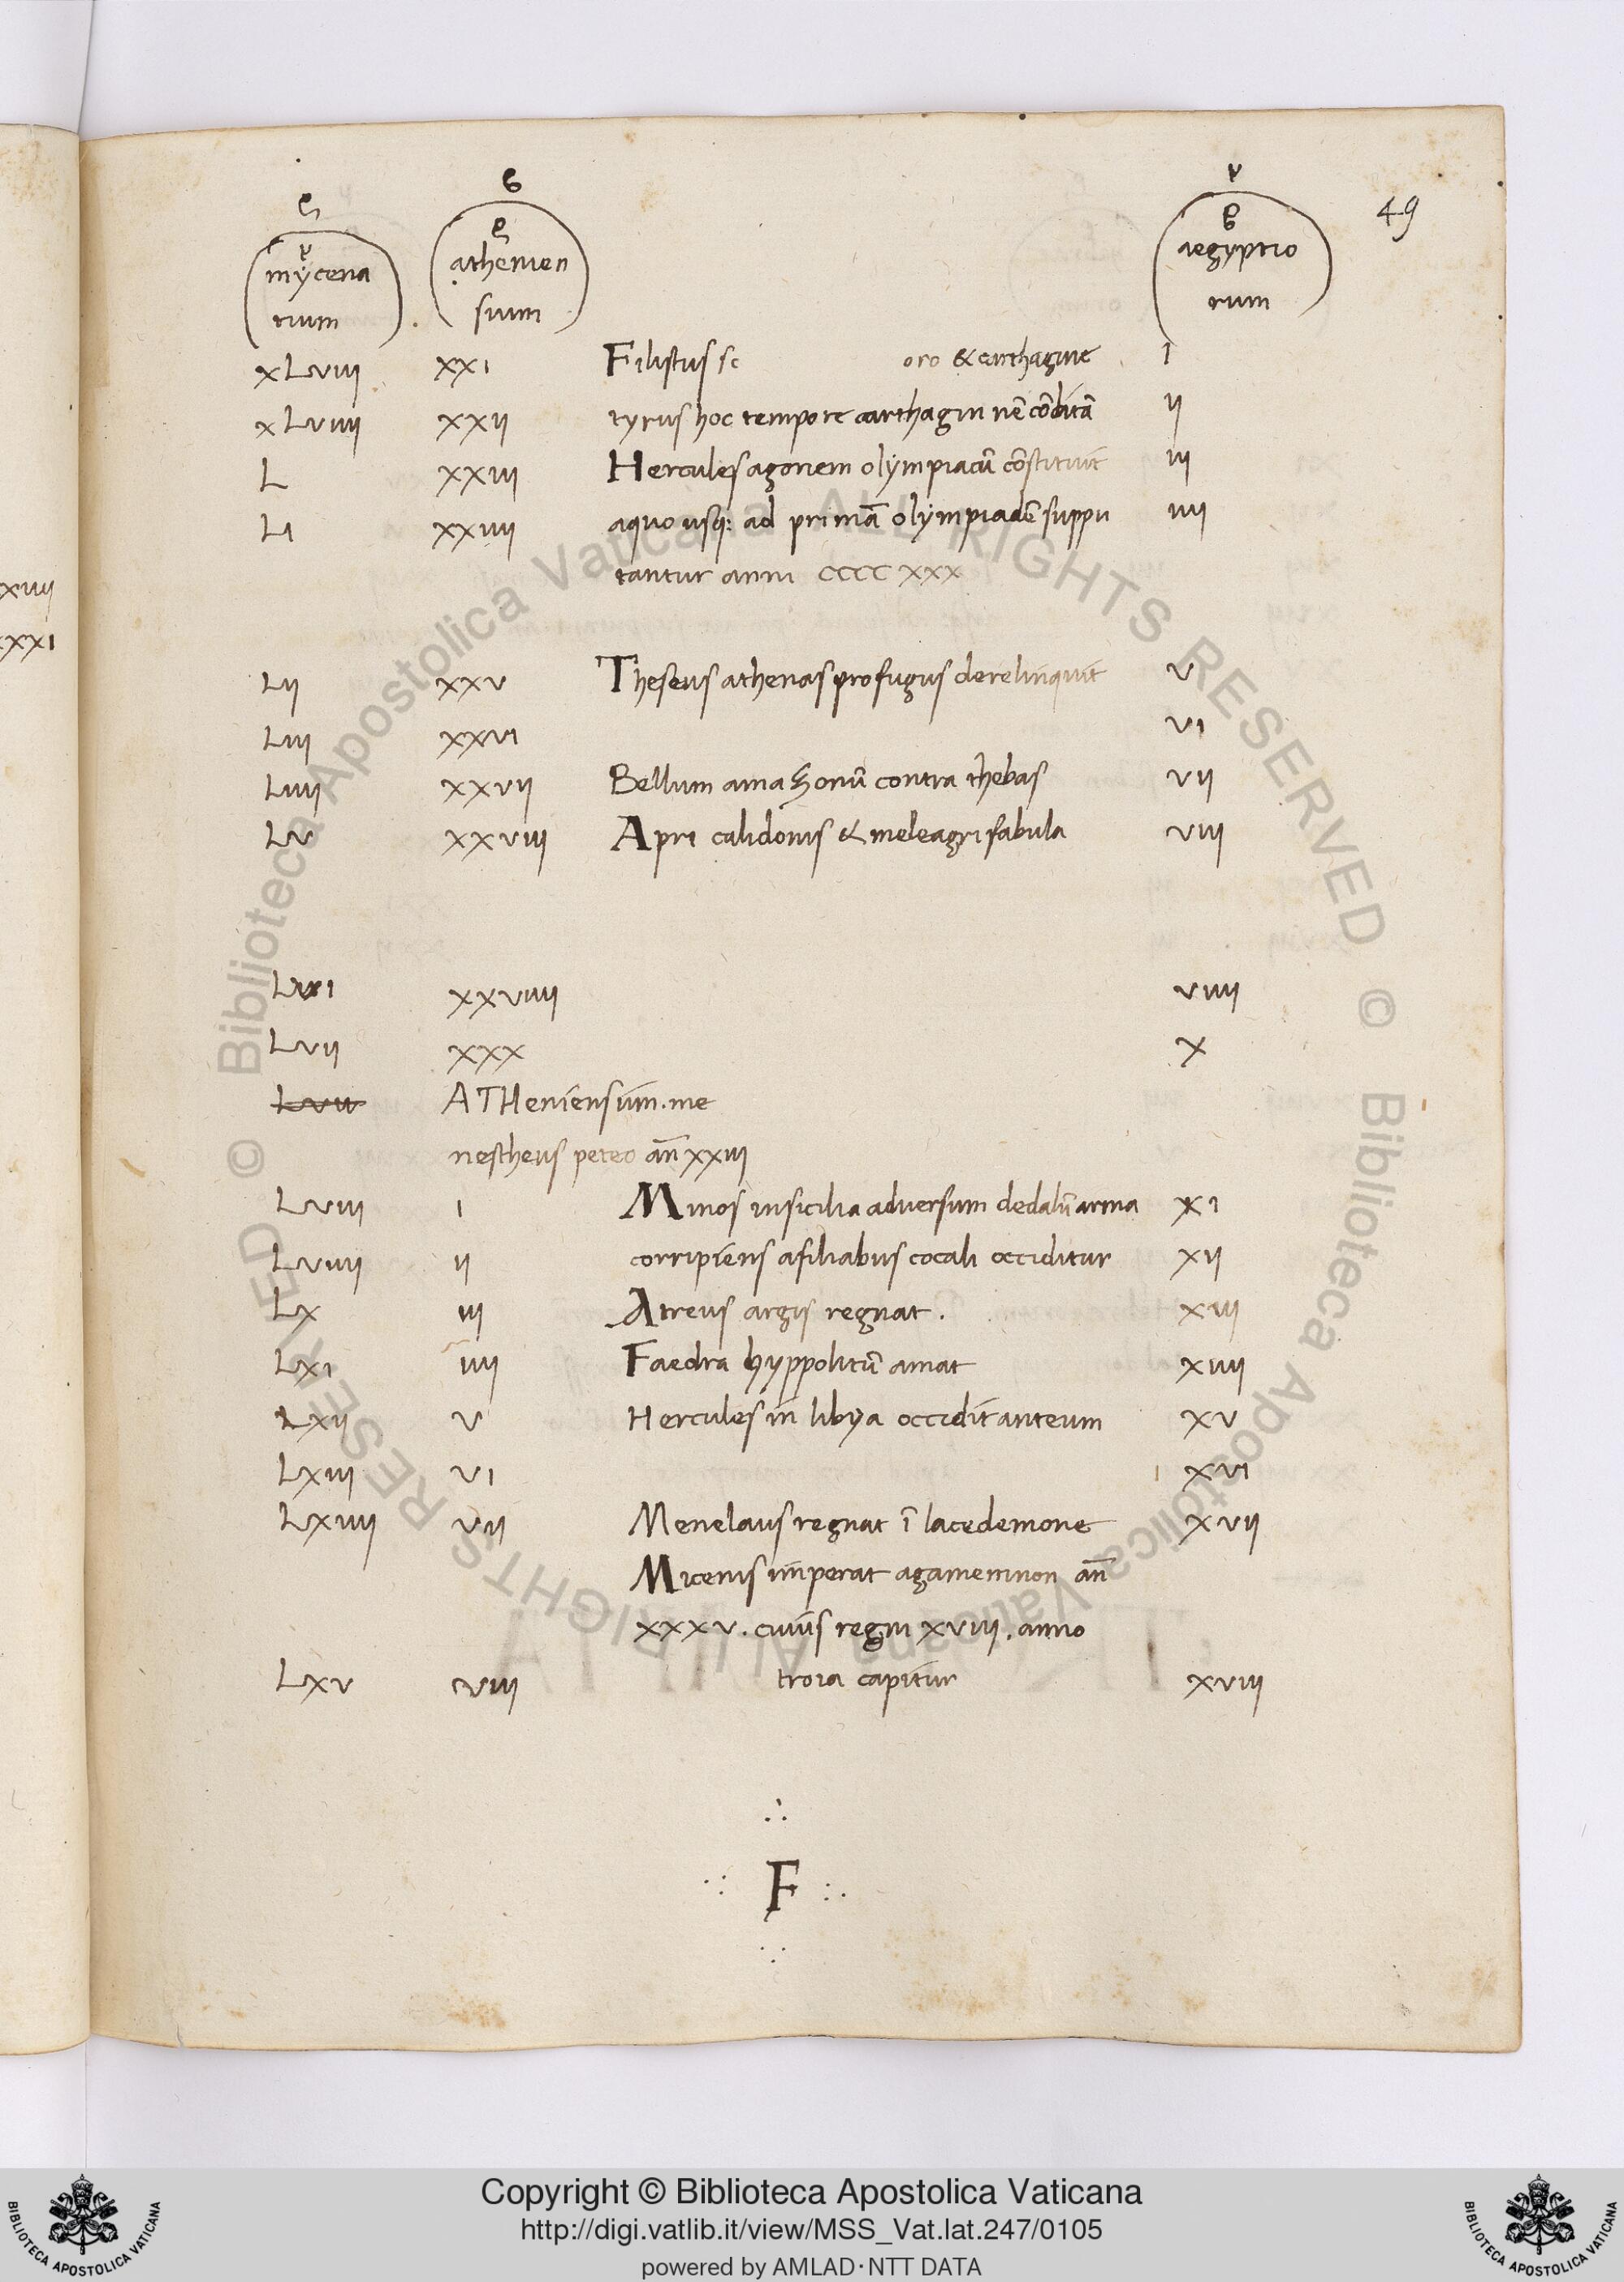 49
mycena athenien aegyptio
rium sium rum
xLviii xxi Filistus sc oro & carthagine i
xLviiii xxii tyrus hoc tempore carthaginnē cōditā ii
L xxiii Hercules agonem olympiacū cōstituit iii
Li xxiiii aquo usq: ad primā olympiadē suppu iiii
tantur anni cccc xxx
xviiii
xxxi
Lii xxv Theseus athenas profugus derelinquit v
Liii xxvi vi
Liiii xxvii Bellum amazonū contra thebas vii
Lv xxviii Apri calidonis & meleagri fabula viii
Lvi xxviiii viiii
Lvii xxx x
Lvii ATHeniensium.me
nestheus peteo an̄ xxiii
Lviii i Minos insicilia adversum dedalū arma xi
Lviiii ii corripiens afiliabus cocali occiditur xii
Lx iii Atreus argis regnat. xiii
Lxi iiii Faedra hyppolitū amat xiiii
Lxii v Hercules in libya occidit anteum xv
Lxiii vi xvi
Lxiiii vii Menelaus regnat ī lacedemone xvii
Micenis imperat agamemnon an̄
xxxv. cuius regni xviii. anno
Lxv viii troia capitur xviii
F
© Biblioteca Apostolica Vaticana ALL RIGHTS RESERVED © Biblioteca Apostolica Vaticana ALL RIGHTS RESERVED
Copyright © Biblioteca Apostolica Vaticana
http://digi.vatlib.it/view/MSS_Vat.lat.247/0105
powered by AMLAD·NTT DATA
BIBLIOTECA APOSTOLICA VATICANA
BIBLIOTECA APOSTOLICA VATICANA